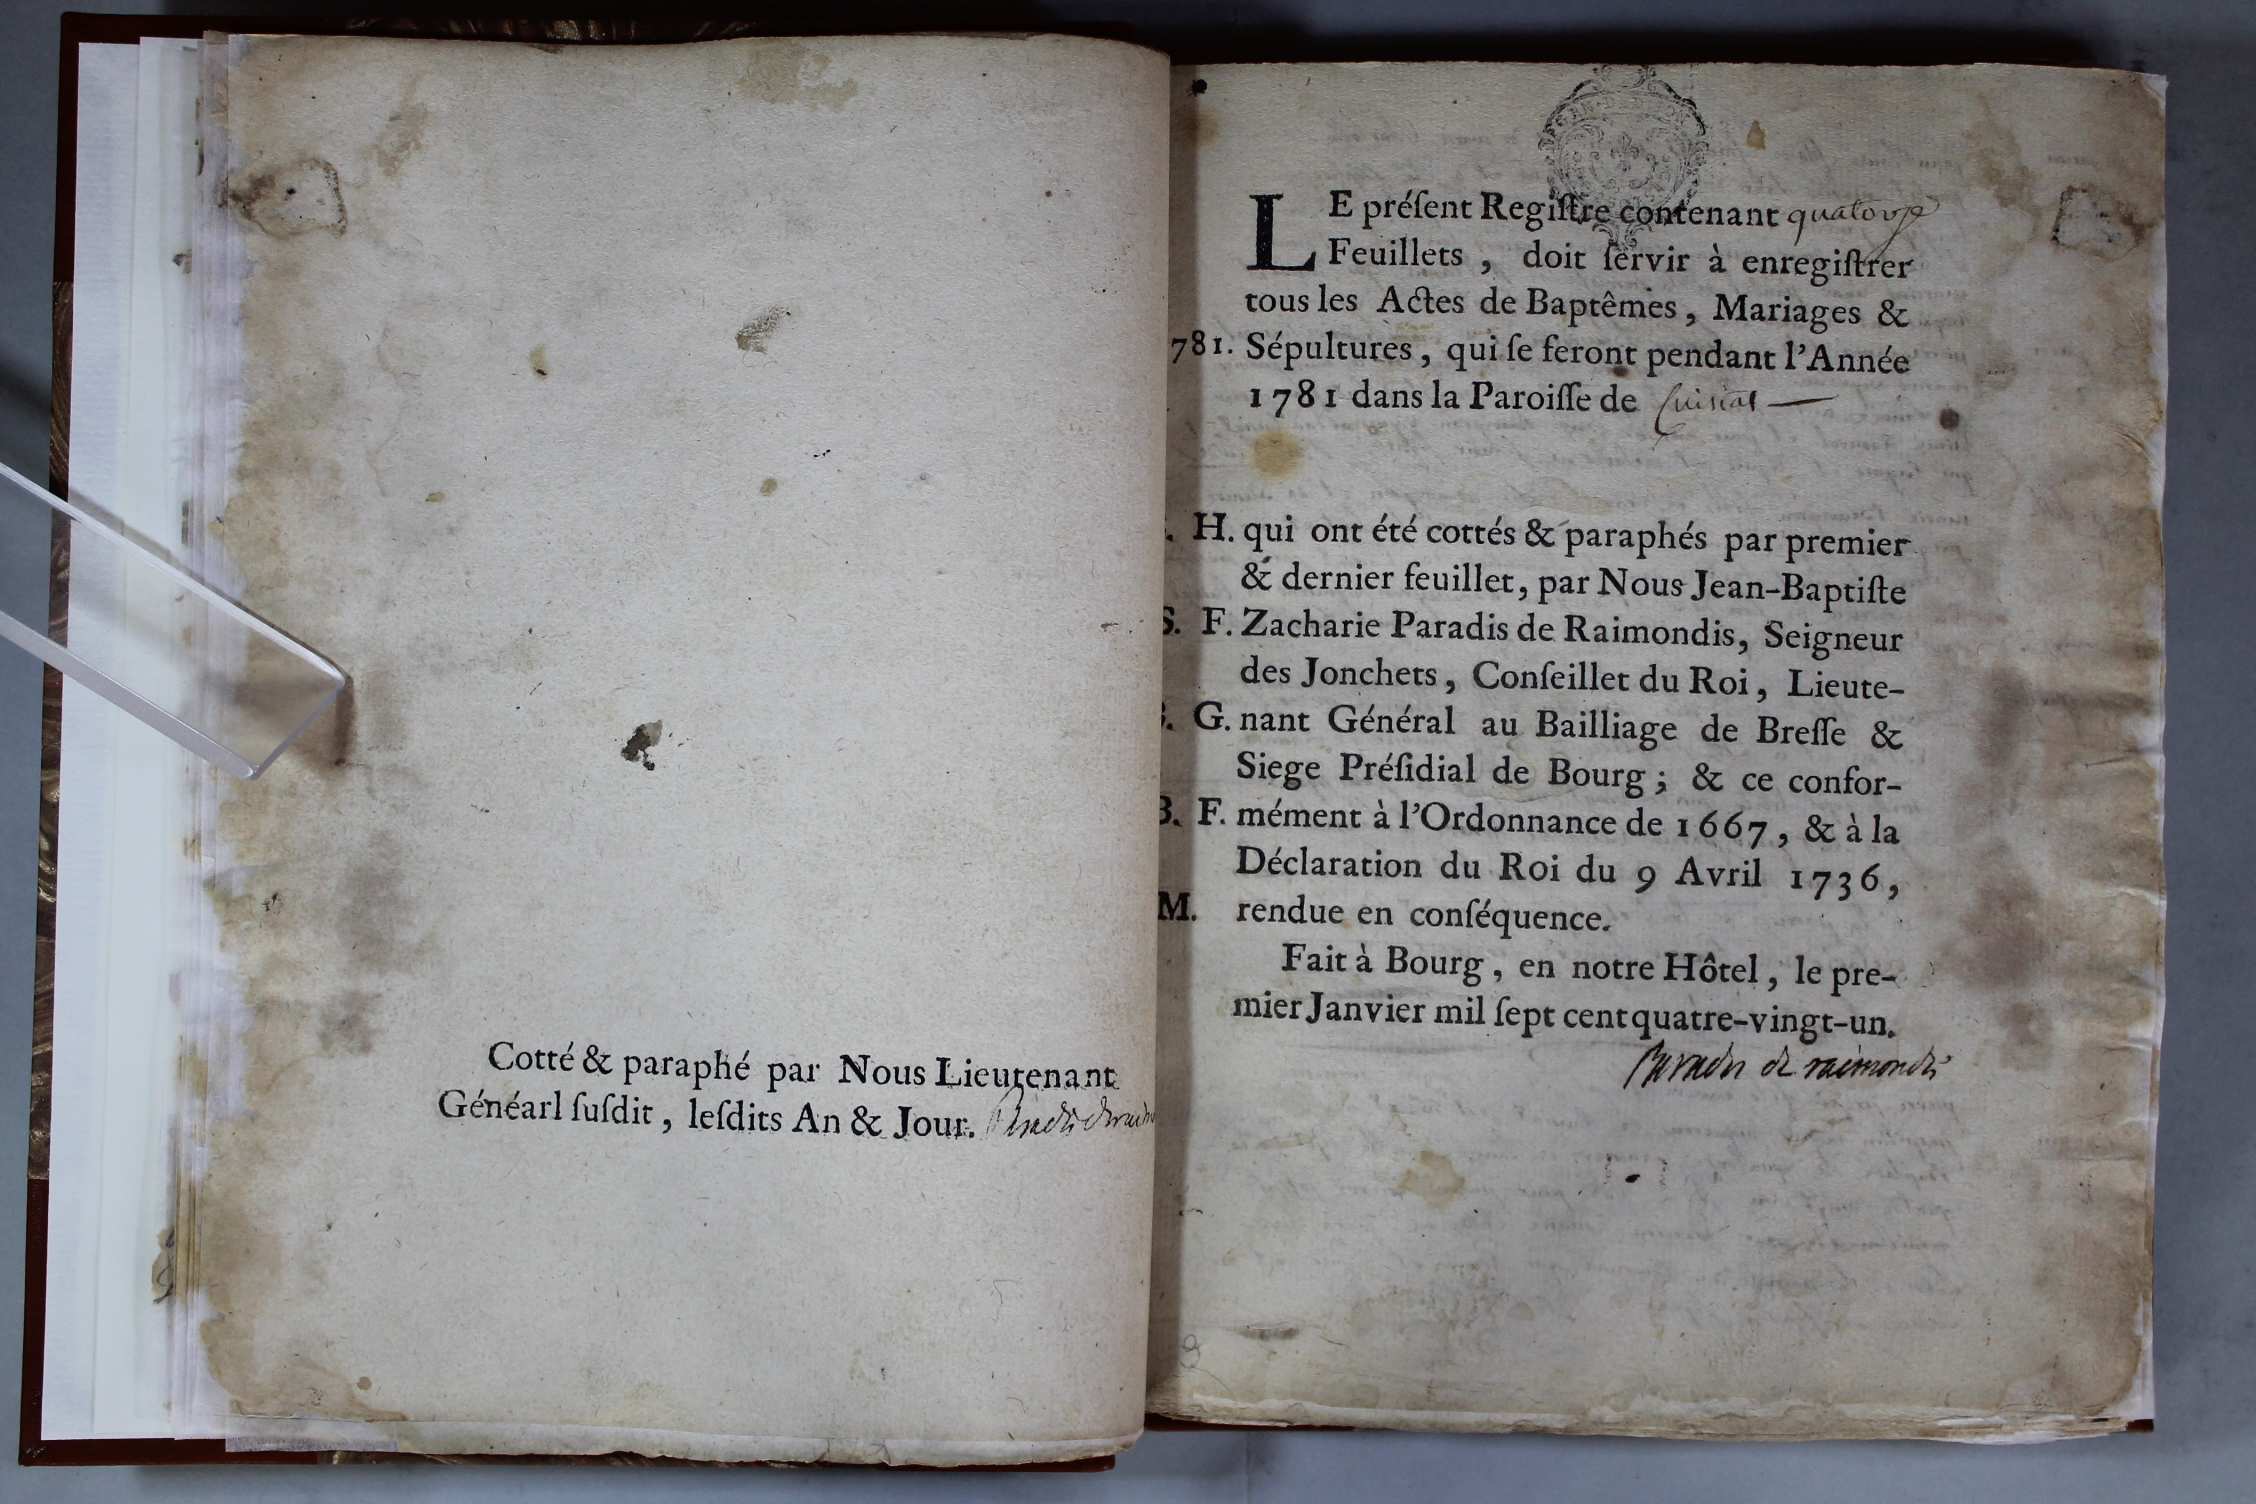 Cotté & paraphé par Nous Lieutenant
Généarl ſuſdit, leſdits An & Jour.
LE préſent Regiſtre contenant quatorze
Feuillets, doit ſervir à enregiſtrer
tous les Actes de Baptêmes, Mariages &
781. Sépultures, qui ſe feront pendant l'Année
1781 dans la Paroiſſe de Cuisiat
H. qui ont été cottés & paraphés par premier
& dernier feuillet, par Nous Jean-Baptiſte
S. F. Zacharie Paradis de Raimondis, Seigneur
des Jonchets, Conſeillet du Roi, Lieute-
G. nant Général au Bailliage de Breſſe &
Siege Préſidial de Bourg; & ce confor-
B. F. mément à l'Ordonnance de 1667, & à la
Déclaration du Roi du 9 Avril 1736,
M. rendue en conſéquence.
Fait à Bourg, en notre Hôtel, le pre-
mier Janvier mil ſept cent quatre-vingt-un.
Paradis de raimondis